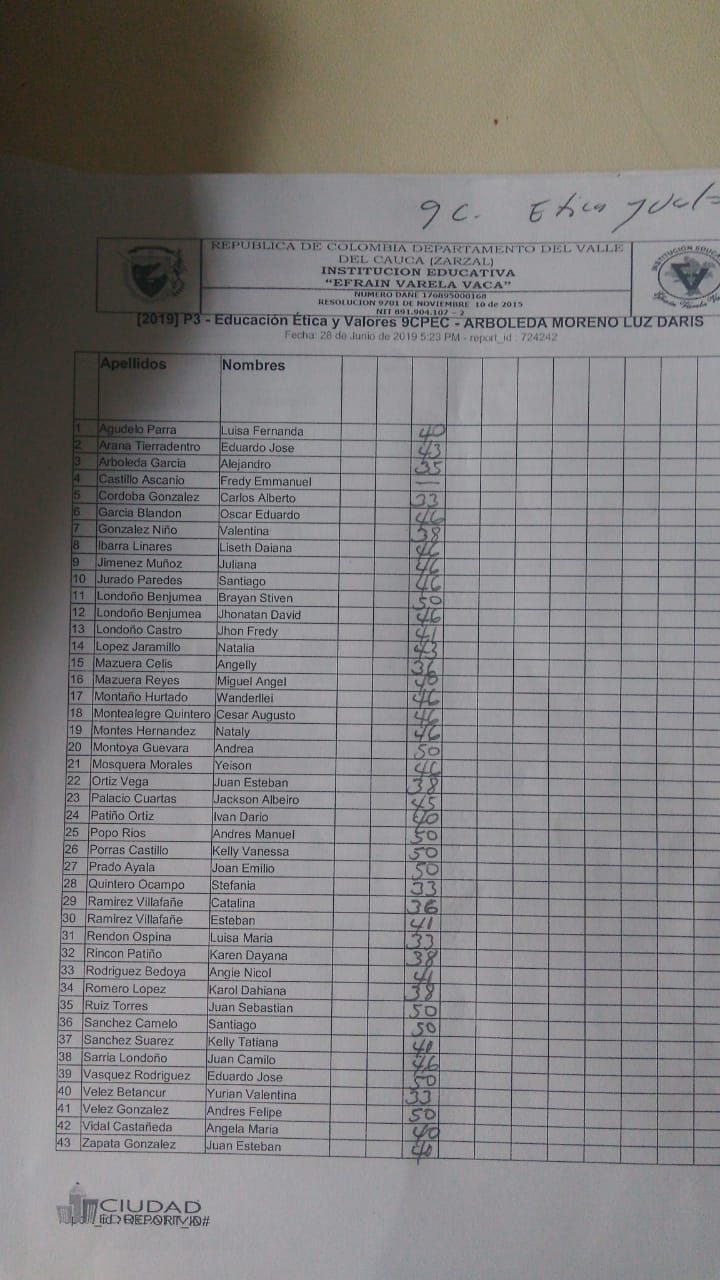 9 C. Etica y Val
REPUBLICA DE COLOMBIA DEPARTAMENTO DEL VALLE
DEL CAUCA (ZARZAL)
INSTITUCION EDUCATIVA
“EFRAIN VARELA VACA”
NUMERO DANE 176895000168
RESOLUCION 9701 DE NOVIEMBRE 10 de 2015
NIT 891.904.107 - 2
[2019] P3 - Educación Ética y Valores 9CPEC - ARBOLEDA MORENO LUZ DARIS
Fecha: 28 de Junio de 2019 5:23 PM - report_id : 724242
Apellidos Nombres
1 Agudelo Parra Luisa Fernanda 40
2 Arana Tierradentro Eduardo Jose 43
3 Arboleda Garcia Alejandro 35
4 Castillo Ascanio Fredy Emmanuel —
5 Cordoba Gonzalez Carlos Alberto 33
6 Garcia Blandon Oscar Eduardo 46
7 Gonzalez Niño Valentina 38
8 Ibarra Linares Liseth Daiana 46
9 Jimenez Muñoz Juliana 46
10 Jurado Paredes Santiago 46
11 Londoño Benjumea Brayan Stiven 50
12 Londoño Benjumea Jhonatan David 46
13 Londoño Castro Jhon Fredy 41
14 Lopez Jaramillo Natalia 43
15 Mazuera Celis Angelly 36
16 Mazuera Reyes Miguel Angel 40
17 Montaño Hurtado Wanderllei 46
18 Montealegre Quintero Cesar Augusto 46
19 Montes Hernandez Nataly 46
20 Montoya Guevara Andrea 50
21 Mosquera Morales Yeison 46
22 Ortiz Vega Juan Esteban 38
23 Palacio Cuartas Jackson Albeiro 45
24 Patiño Ortiz Ivan Dario 40
25 Popo Rios Andres Manuel 50
26 Porras Castillo Kelly Vanessa 50
27 Prado Ayala Joan Emilio 50
28 Quintero Ocampo Stefania 33
29 Ramirez Villafañe Catalina 36
30 Ramirez Villafañe Esteban 41
31 Rendon Ospina Luisa Maria 33
32 Rincon Patiño Karen Dayana 38
33 Rodriguez Bedoya Angie Nicol 41
34 Romero Lopez Karol Dahiana 38
35 Ruiz Torres Juan Sebastian 50
36 Sanchez Camelo Santiago 50
37 Sanchez Suarez Kelly Tatiana 40
38 Sarria Londoño Juan Camilo 46
39 Vasquez Rodriguez Eduardo Jose 50
40 Velez Betancur Yurian Valentina 33
41 Velez Gonzalez Andres Felipe 50
42 Vidal Castañeda Angela Maria 40
43 Zapata Gonzalez Juan Esteban 40
CIUDAD